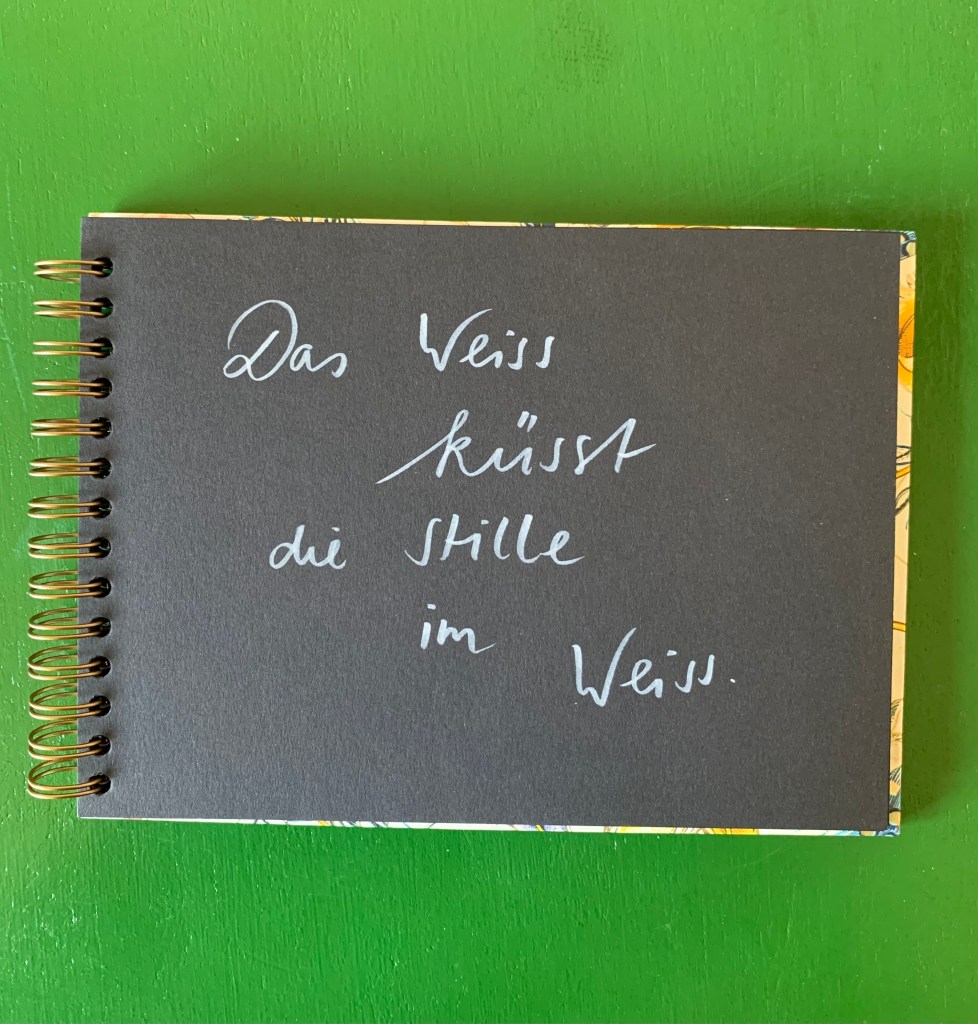 Das Weiss
küsst
die Stille
im
Weiss.